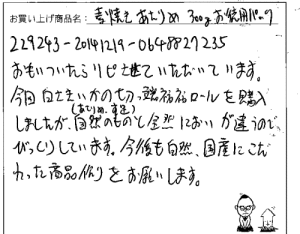 お買い上げ商品名: 素焼きあたりめ 300g お徳用パック
229243-20141219-0648827235
おもいついたらリピさせていただいています。
今回 白さきいかの切り端 福福ロールを購入
(あたりめ、素足)
しましたが、自然のものと全然においが違うので
びっくりしています。今後も自然、国産にこだ
わった商品作りをお願いします。